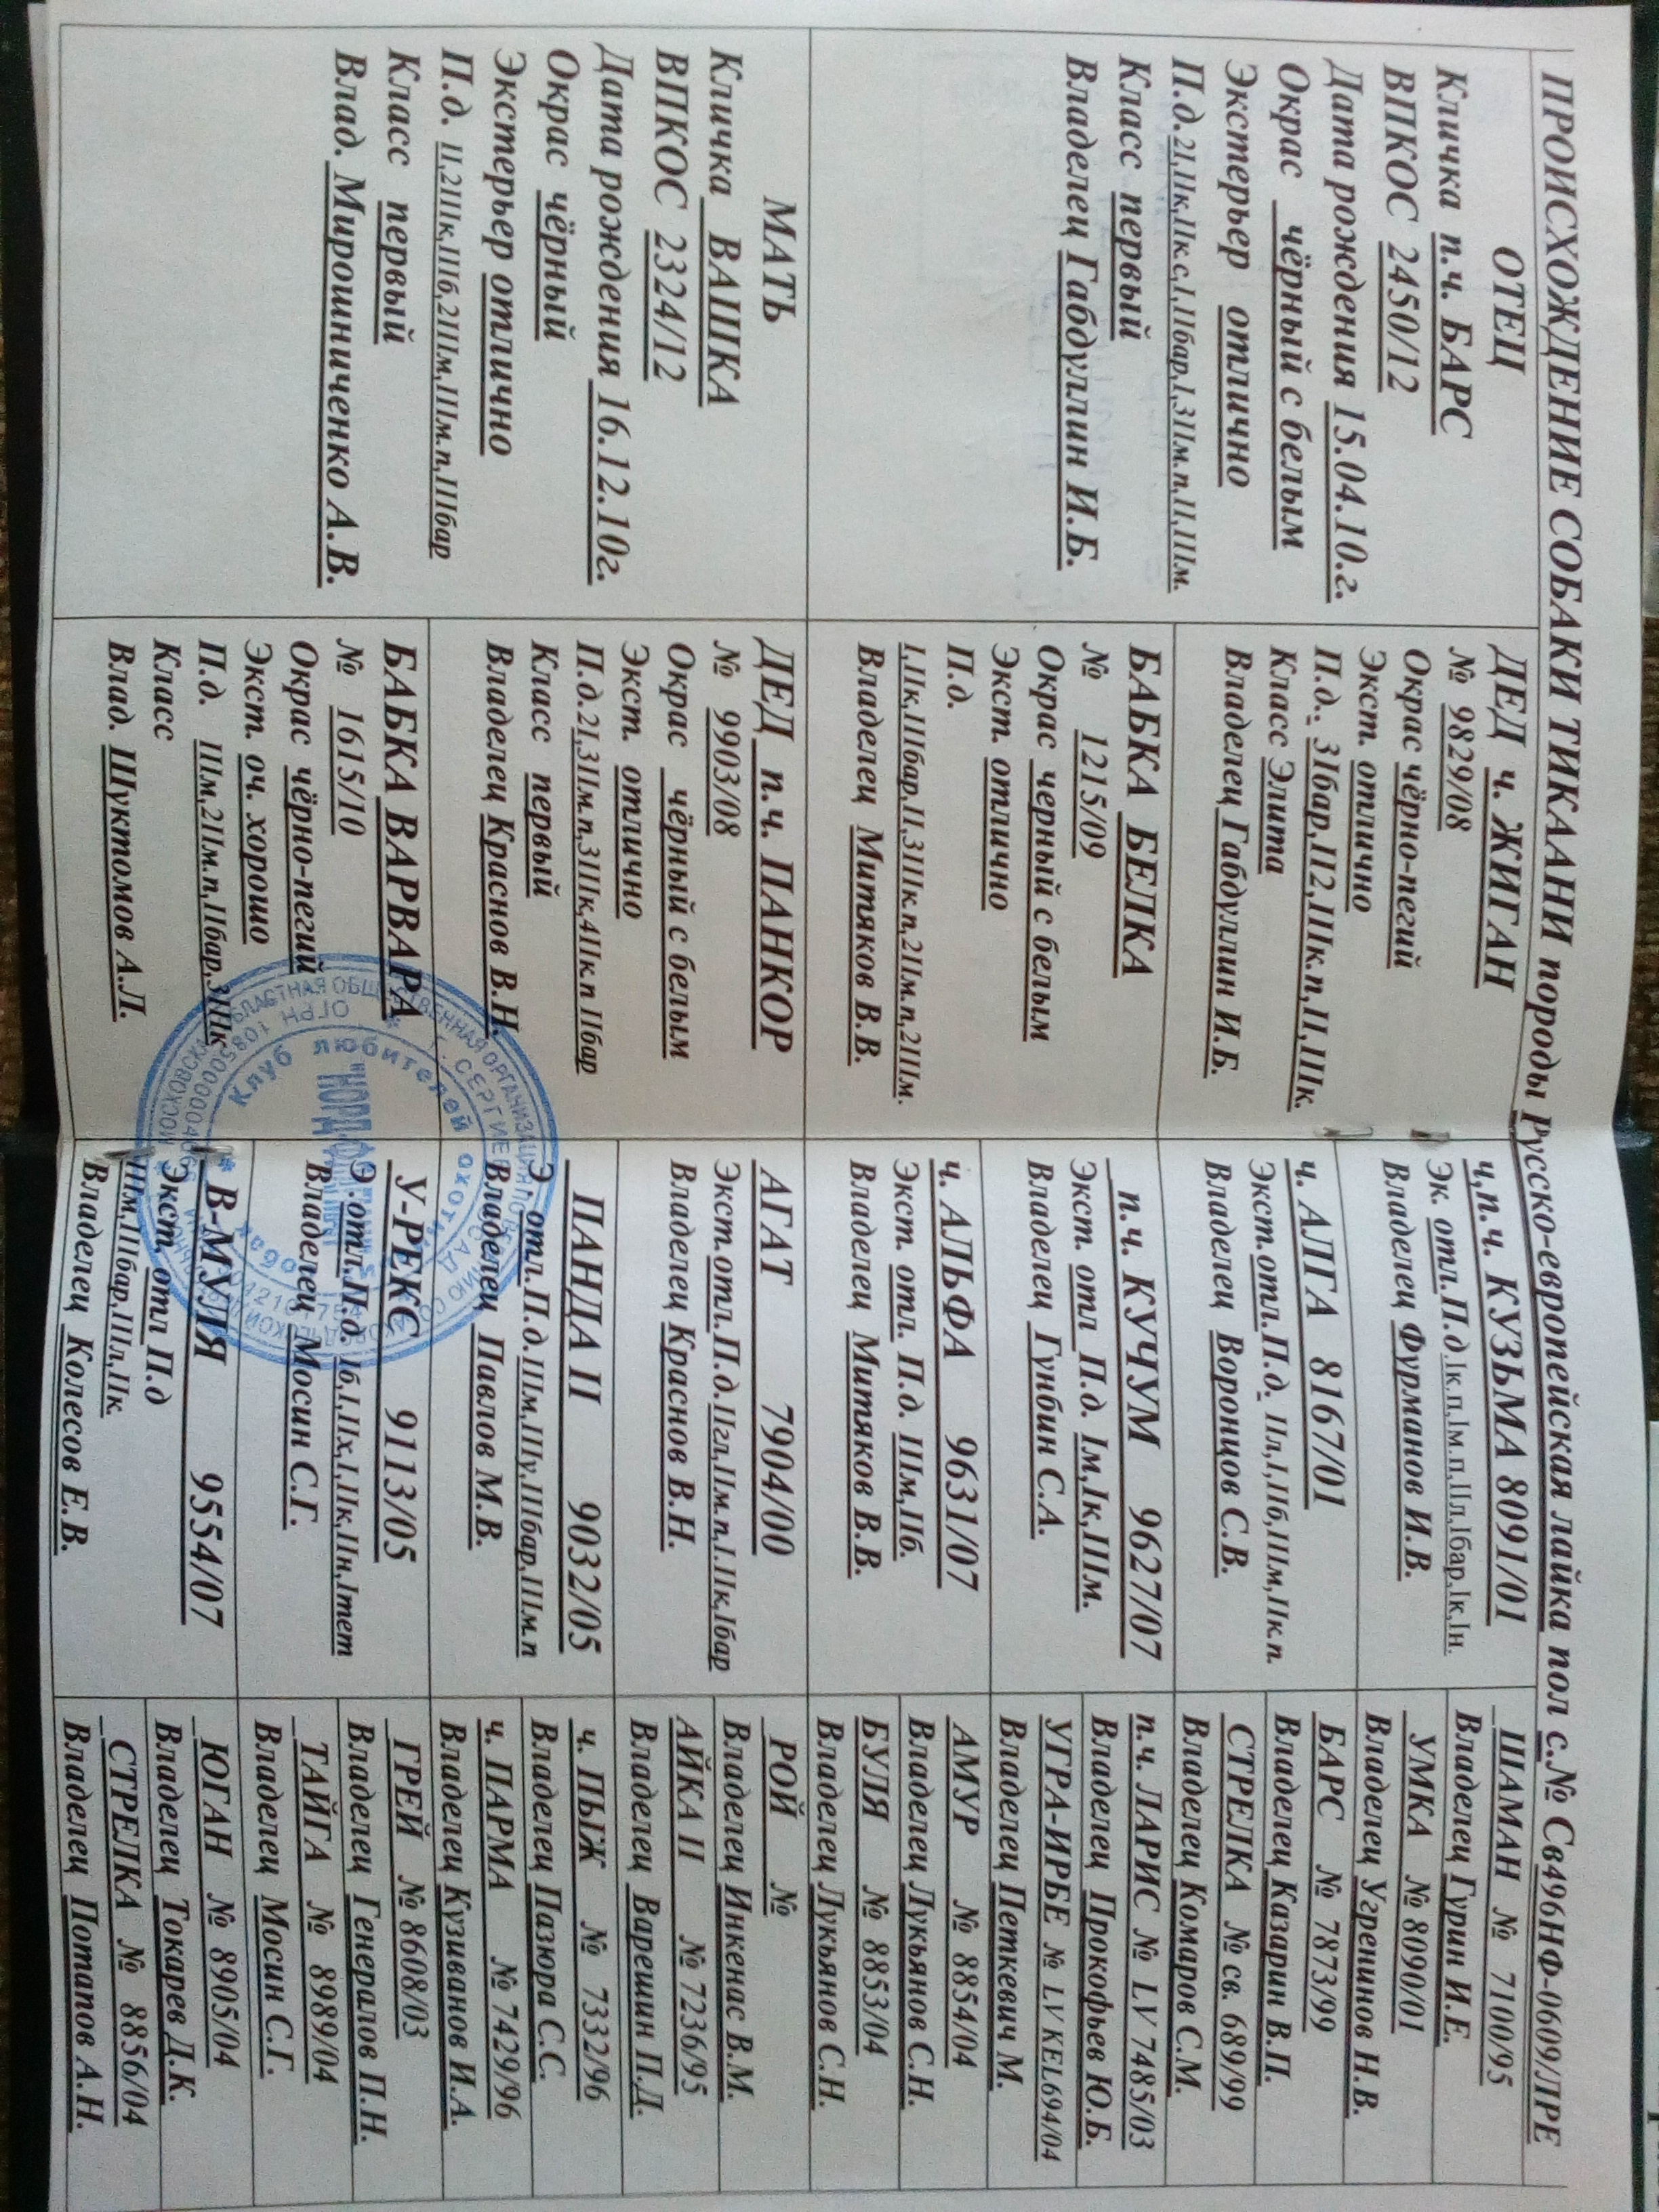 ПРОИСХОЖДЕНИЕ СОБАКИ ТИКААНИ породы Русско-европейская лайка пол с.№ Св496НФ-0609/ЛРЕ
ОТЕЦ
Кличка п.ч. БАРС
ВПКОС 2450/12
Дата рождения 15.04.10.г.
Окрас чёрный с белым
Экстерьер отлично
П.д.2I,IIк,IIк.с,I,IIбар,I,3IIм.п,II,IIIм.
Класс первый
Владелец Габдуллин И.Б.
МАТЬ
Кличка ВАШКА
ВПКОС 2324/12
Дата рождения 16.12.10г.
Окрас чёрный
Экстерьер отлично
П.д. II,2IIIк,IIIб,2IIIм,IIIм.п,IIIбар
Класс первый
Влад. Мирошниченко А.В.
ДЕД ч. ЖИГАН
№ 9829/08
Окрас чёрно-пегий
Экст. отлично
П.д.: 3Iбар,II2,IIIк.п,II,IIIк.
Класс Элита
Владелец Габдуллин И.Б.
БАБКА БЕЛКА
№ 1215/09
Окрас черный с белым
Экст. отлично
П.д.
I,IIк,IIIбар,II,3IIIк.п,2IIм.п,2IIIм.
Владелец Митяков В.В.
ДЕД п.ч. ПАНКОР
№ 9903/08
Окрас чёрный с белым
Экст. отлично
П.д.2I,3IIм.п,3IIIк,4IIк.п IIбар
Класс первый
Владелец Краснов В.Н.
БАБКА ВАРВАРА
№ 1615/10
Окрас чёрно-пегий
Экст. оч. хорошо
П.д. IIIм,2IIм.п,IIбар,3IIIк
Класс
Влад. Шуктомов А.Л.
ч,п.ч. КУЗЬМА 8091/01
Эк. отл.П.д.Iк.п,Iм.п,IIл,Iбар,Iк,Iн.
Владелец Фурманов И.В.
ч. АЛГА 8167/01
Экст.отл.П.д. IIл,I,IIб,IIIм,IIк.п.
Владелец Воронцов С.В.
п.ч. КУЧУМ 9627/07
Экст. отл П.д. Iм,Iк,IIIм.
Владелец Гунбин С.А.
ч. АЛЬФА 9631/07
Экст. отл. П.д. IIIм,IIб.
Владелец Митяков В.В.
АГАТ 7904/00
Экст.отл.П.д.IIгл,IIм.п,I.IIк,Iбар
Владелец Краснов В.Н.
ПАНДА II 9032/05
Э. отл.П.д.IIIм,IIIу,IIIбар,IIIм.п
Владелец Павлов М.В.
У-РЕКС 9113/05
Э. отл.П.д. Iб,I,IIх,I,IIк,IIн,Iтет
Владелец Мосин С.Г.
В-МУЛЯ 9554/07
Экст. отл П.д
IIIм,IIIбар,IIIл,IIк.
Владелец Колесов Е.В.
ШАМАН № 7100/95
Владелец Гурин И.Е.
УМКА № 8090/01
Владелец Угренинов Н.В.
БАРС № 7873/99
Владелец Казарин В.П.
СТРЕЛКА № св. 689/99
Владелец Комаров С.М.
п.ч. ЛАРИС № LV 7485/03
Владелец Прокофьев Ю.Б.
УГРА-ИРБЕ № LV KEL694/04
Владелец Петкевич М.
АМУР № 8854/04
Владелец Лукьянов С.Н.
БУЛЯ № 8853/04
Владелец Лукьянов С.Н.
РОЙ №
Владелец Инкенас В.М.
АЙКА II № 7236/95
Владелец Варешин П.Д.
ч. ПЫЖ № 7332/96
Владелец Пазюра С.С.
ч. ПАРМА № 7429/96
Владелец Кузиванов И.А.
ГРЕЙ № 8608/03
Владелец Генералов П.Н.
ТАЙГА № 8989/04
Владелец Мосин С.Г.
ЮГАН № 8905/04
Владелец Токарев Д.К.
СТРЕЛКА № 8856/04
Владелец Потапов А.Н.
Клуб любителей охотничьих собак